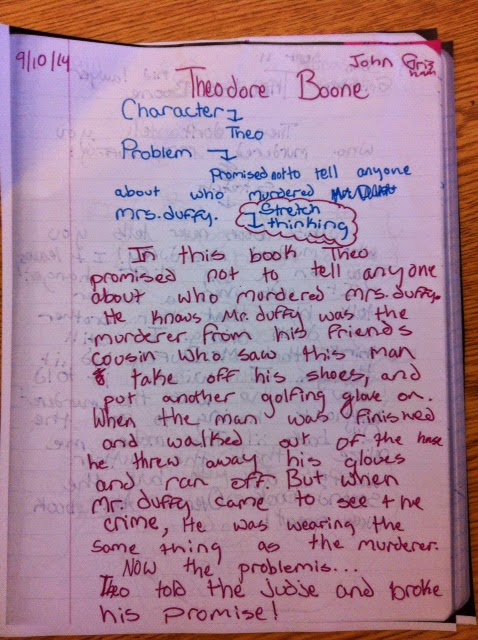 9/10/14
John Grisham
Theodore Boone
Character
Theo
Problem
Promised not to tell anyone
about who murdered
mrs.duffy.
Stretch
thinking
In this book Theo
promised not to tell anyone
about who murdered mrs.duffy.
He knows Mr.duffy was the
murderer from his friends
cousin who saw this man
take off his shoes, and
put another golfing glove on.
When the man was finished
and walked out of the house
he threw away his gloves
and ran off. But when
Mr.duffy came to see the
crime, He was wearing the
same thing as the murderer.
NOW the problem is...
Theo told the judje and broke
his promise!